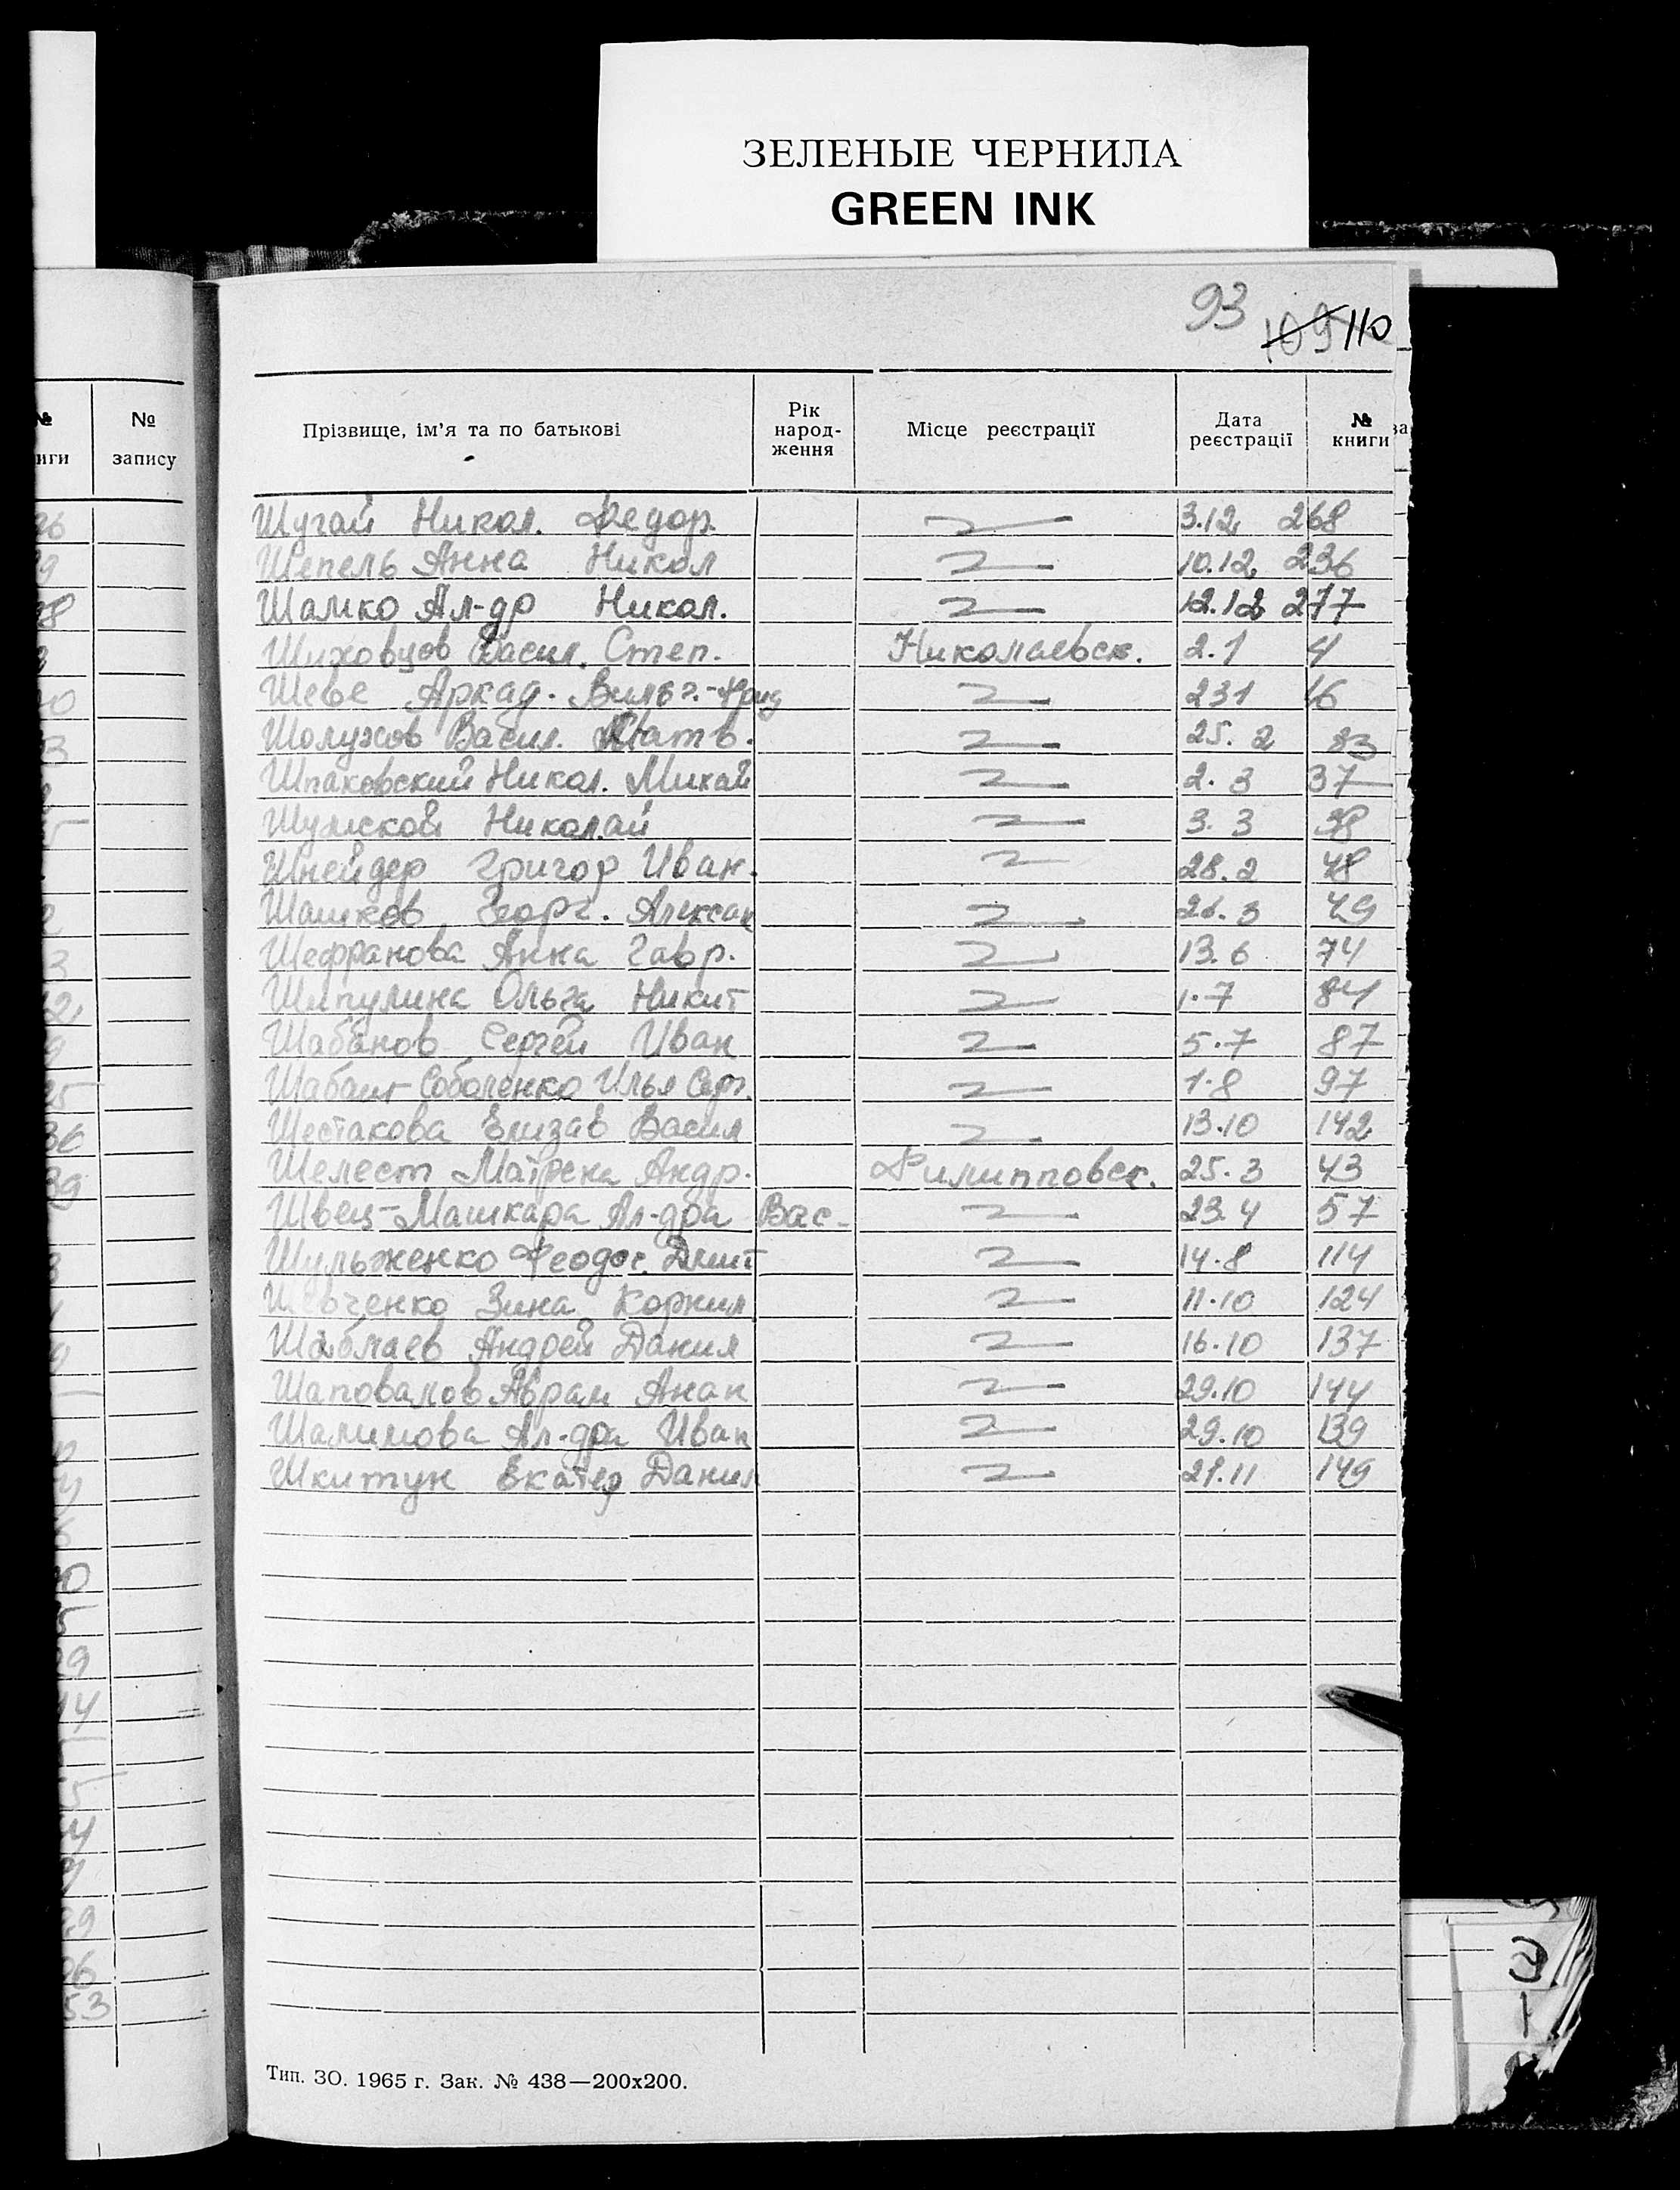 ЗЕЛЕНЫЕ ЧЕРНИЛА
GREEN INK
93
109 110
№ книги № запису
Прізвище, ім'я та по батькові Рік народження Місце реєстрації Дата реєстрації № книги
Шугай Никол. Федор. 3.12 268
Шепель Анна Никол 10.12 236
Шамко Ал-др Никол. 12.12 277
Шиховцов Васил. Степ. Николаевск. 2.1 4
Шеве Аркад. 231 16
Шолухов Васил. Матв. 25.2 33
Шпаковский Никол. Михай 2.3 37
Шумской Николай 3.3 38
Шнейдер Григор Иван. 28.2 48
Шашков Георг. Алексан 26.3 49
Шефранова Анна Гавр. 13.6 74
Шипулина Ольга Никит 1.7 84
Шабанов Сергей Иван 5.7 87
Шабант Соболенко Илья Серг. 1.8 97
Шестакова Елизав Васил 13.10 142
Шелест Матрена Андр. Филипповск. 25.3 43
Швец-Машкара Ал-дра Вас. 23.4 57
Шульженко Феодос. Дмит 14.8 114
Шевченко Зина Корнил 11.10 124
Шаблаев Андрей Данил 16.10 137
Шаповалов Абрам Анан 29.10 144
Шалимова Ал-дра Иван 29.10 139
Шкитун Екатер Данил 21.11 149
Тип. ЗО. 1965 г. Зак. № 438—200х200.